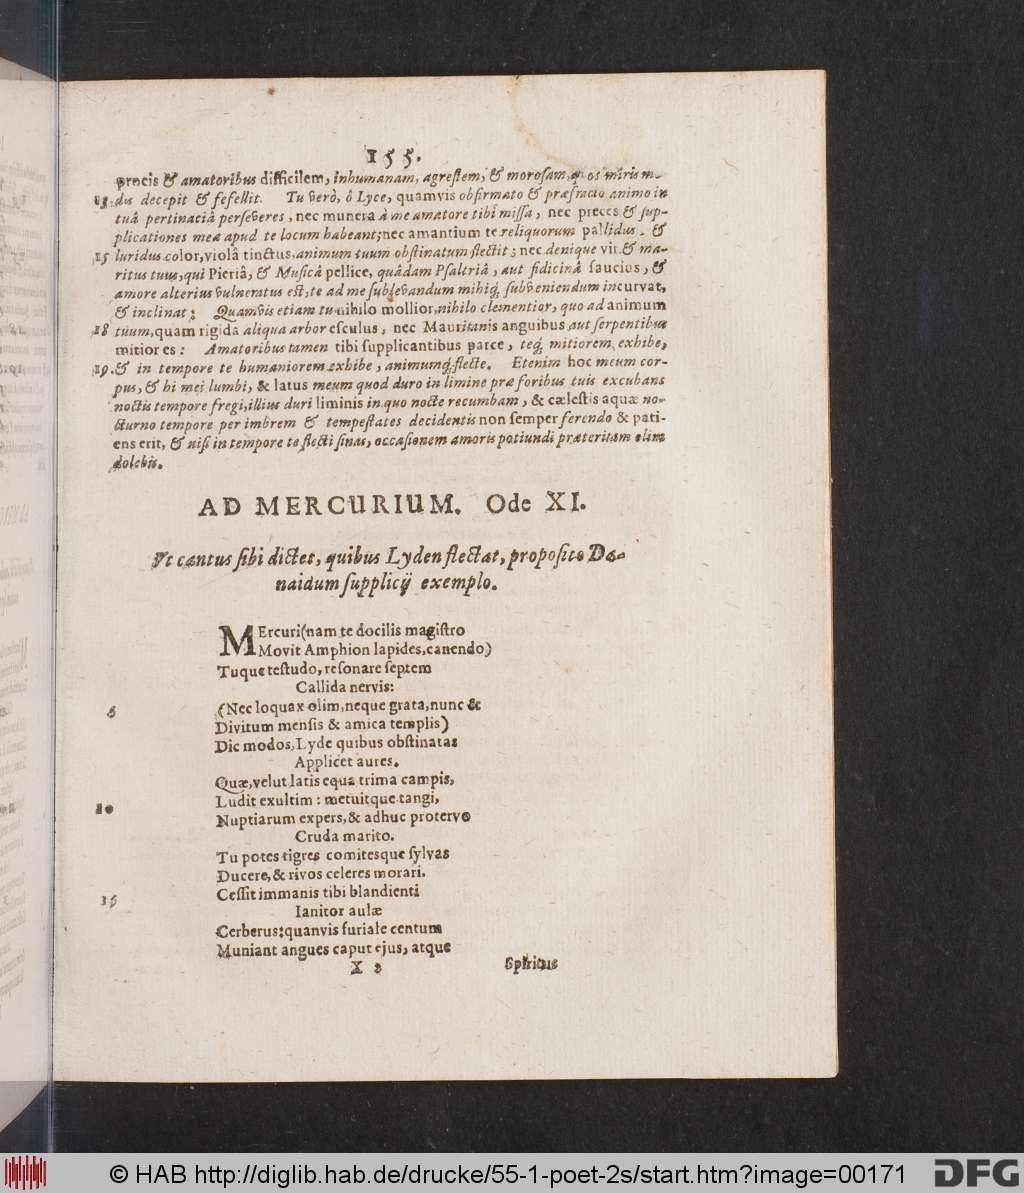 155.
procis & amatoribus difficilem, inhumanam, agrestem, & morosam, quos miris mo-
13. dis decepit & fefellit. Tu verò, ô Lyce, quamvis obfirmato & præfracto animo in
tuâ pertinaciâ perseveres, nec munera à me amatore tibi missa, nec preces & sup-
plicationes meæ apud te locum habeant; nec amantium te reliquorum pallidus & 
15 luridus color, violâ tinctus, animum tuum obstinatum flectit; nec denique vir & ma-
ritus tuus, qui Pieriâ, & Musicâ pellice, quâdam Psaltriâ, aut fidicinâ saucius, &
amore alterius vulneratus est, te ad me sublevandum mihiq́; subveniendum incurvat,
& inclinat; Quamvis etiam tu nihilo mollior, nihilo clementior, quo ad animum
18 tuum, quam rigida aliqua arbor esculus, nec Mauritanis anguibus aut serpentibus
mitiores: Amatoribus tamen tibi supplicantibus parce, teq́; mitiorem exhibe,
19. & in tempore te humaniorem exhibe, animumq́; flecte. Etenim hoc meum cor-
pus, & hi mei lumbi, & latus meum quod duro in limine præ foribus tuis excubans
noctis tempore fregi, illius duri liminis in quo nocte recumbam, & cælestis aquæ no-
cturno tempore per imbrem & tempestates decidentis non semper ferendo & pati-
ens erit, & nisi in tempore te flecti sinas, occasionem amoris potiundi præteritam olim
dolebis.
AD MERCURIUM. Ode XI.
Vt cantus sibi dictet, quibus Lyden flectat, proposito Da-
naidum supplicij exemplo.
MErcuri (nam te docilis magistro
Movit Amphion lapides, canendo)
Tuque testudo, resonare septem
Callida nervis:
5 (Nec loquax olim, neque grata, nunc &
Divitum mensis & amica templis)
Dic modos, Lyde quibus obstinatas
Applicet aures.
Quæ, velut latis equa trima campis,
10 Ludit exultim: metuitque tangi,
Nuptiarum expers, & adhuc protervo
Cruda marito.
Tu potes tigres comitesque sylvas
Ducere, & rivos celeres morari.
15 Cessit immanis tibi blandienti
Ianitor aulæ
Cerberus: quanvis furiale centum
Muniant angues caput ejus, atque
X 2 Spiritus
© HAB http://diglib.hab.de/drucke/55-1-poet-2s/start.htm?image=00171
DFG